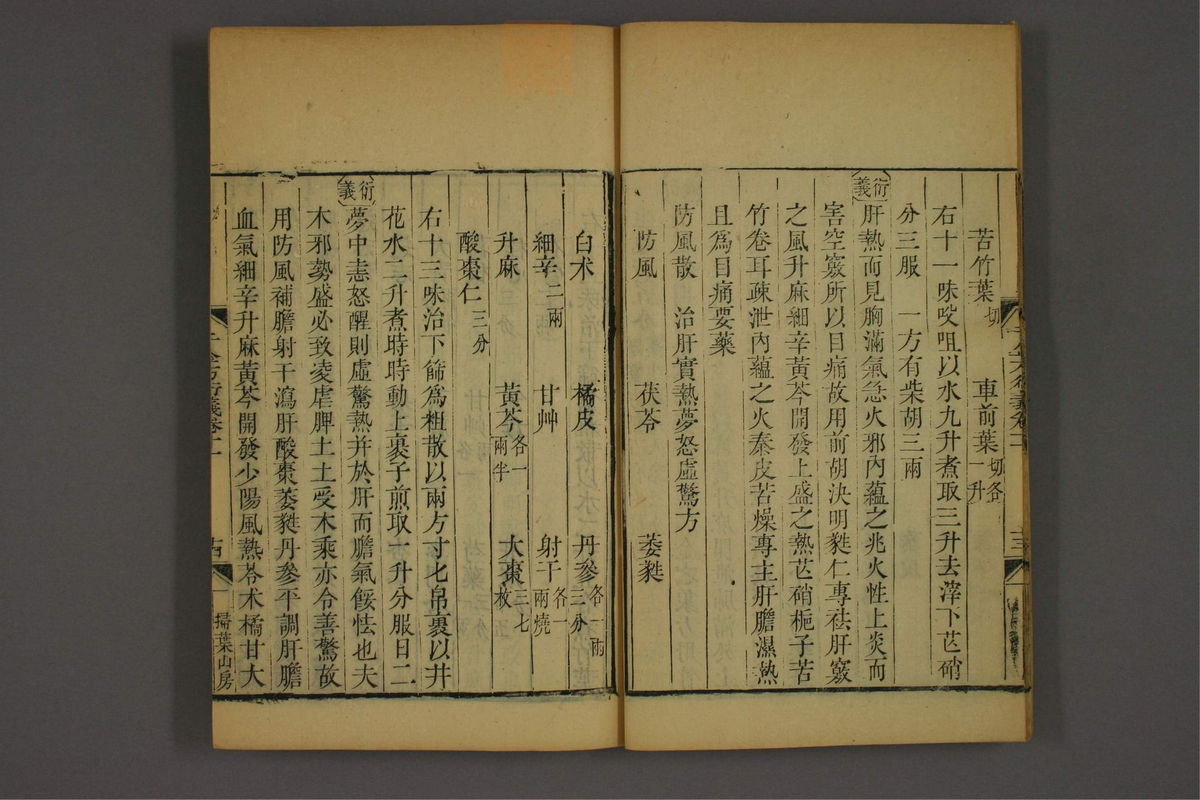 苦竹葉切　車前葉切各一升
右十一味㕮咀以水九升煮取三升去滓下芒硝
分三服　一方有柴胡三兩
衍義肝熱而見胸滿氣急火邪內蘊之兆火性上炎而
害空竅所以目痛故用前胡決明蕤仁專祛肝竅
之風升麻細辛黃芩開發上盛之熱芒硝梔子苦
竹卷耳疎泄內蘊之火秦皮苦燥專主肝膽濕熱
且爲目痛要藥
防風散　治肝實熱夢怒虛驚方
防風　茯苓　萎蕤
白术　橘皮　丹參各一兩三分
細辛二兩　甘艸　射干各一兩燒
升麻　黃芩各一兩半　大棗三七枚
酸棗仁三分
右十三味治下篩爲粗散以兩方寸匕帛裹以井
花水二升煮時時動上裹子煎取一升分服日二
衍義夢中恚怒醒則虛驚熱并於肝而膽氣餒怯也夫
木邪勢盛必致凌虐脾土土受木乘亦令善驚故
用防風補膽射干瀉肝酸棗萎蕤丹參平調肝膽
血氣細辛升麻黃芩開發少陽風熱苓术橘甘大
千金方衍義卷十一
古
掃葉山房